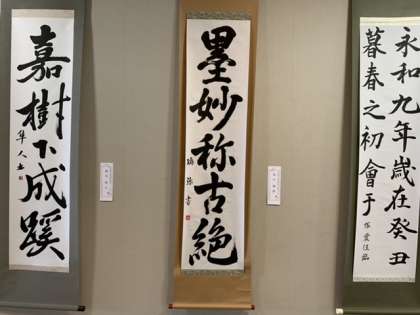 永和九年歳在癸丑
暮春之初會于
墨妙称古絶
嘉樹下成蹊
隼人書